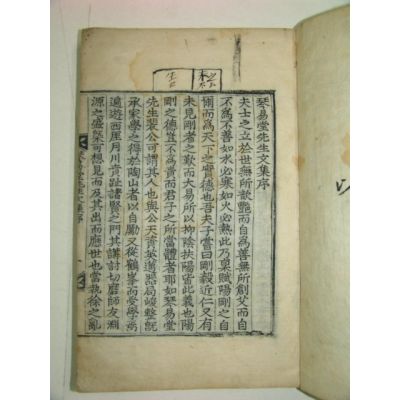 琴易堂先生文集序
夫士之立於世無所歆艶而自爲善無所創艾而自
不爲不善如水必寒如火必熱此乃稟賦陽剛之自
爾而爲天下之實德也吾夫子嘗曰剛毅近仁又有
未見剛者之歎而大易所以抑陰扶陽皆此義也陽
剛之德豈不爲貴而君子之所當體者耶如琴易堂
先生裵公可謂其人也與公天資英邁器局峻整旣
承家學之得於陶山者以自勵又從鶴峯而受學焉
遍遊西厓月川賁趾諸賢之門其講討切磨師友淵
源之盛槩可想見而及其出而應世也當執徐之亂